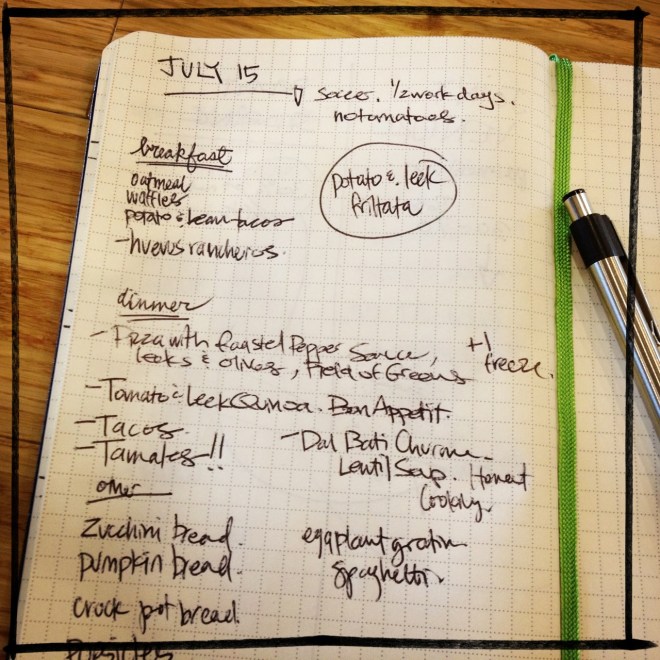 JULY 15
soccer. 1/2 work days.
no tomatoes.
breakfast
oatmeal
waffles
potato & bean tacos
- huevus rancheros.
potato & leek
frittata
dinner
- Pizza with Roasted Pepper Sauce,
leeks & olives, Field of Greens
+1
freeze.
- Tomato & Leek Quinoa. Bon Appetit.
- Tacos.
- Tamales!!
- Dal Bati Churma
Lentil Soup. Honest
Cooking.
other
Zucchini bread.
pumpkin bread.
crock pot bread.
Popsicles
eggplant gratin
spaghetti.